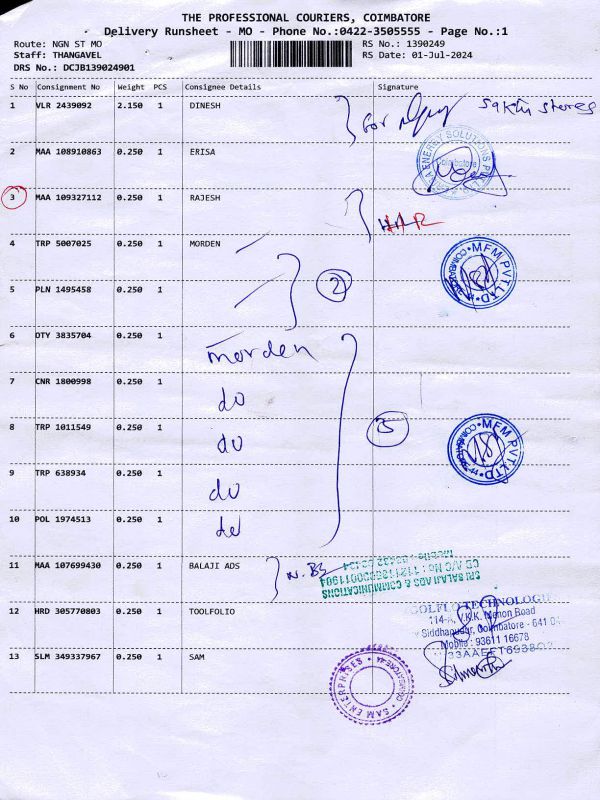 THE PROFESSIONAL COURIERS, COIMBATORE
Delivery Runsheet - MO - Phone No.:0422-3505555 - Page No.:1
Route: NGN ST MO
RS No.: 1390249
Staff: THANGAVEL
RS Date: 01-Jul-2024
DRS No.: DCJB139024901
S No Consignment No Weight PCS Consignee Details Signature
1 VLR 2439092 2.150 1 DINESH for Sakthi stores
2 MAA 108910863 0.250 1 ERISA
ENERGY SOLUTIONS PVT
Coimbatore
3 MAA 109327112 0.250 1 RAJESH
4 TRP 5007025 0.250 1 MORDEN
MFM PVT.LTD
5 PLN 1495458 0.250 1
2
6 OTY 3835704 0.250 1 morden
7 CNR 1800998 0.250 1 do
8 TRP 1011549 0.250 1 do
5
MFM PVT.LTD
9 TRP 638934 0.250 1 do
10 POL 1974513 0.250 1 do
11 MAA 107699430 0.250 1 BALAJI ADS
SRI BALAJI ADS & COMMUNICATIONS
12 HRD 305770803 0.250 1 TOOLFOLIO
GOLFLO TECHNOLOGI
114-A, V.K.K. Menon Road
Siddhapudur, Coimbatore - 641 04
Mobile : 93611 16678
13 SLM 349337967 0.250 1 SAM
SAM ENTERPRISES